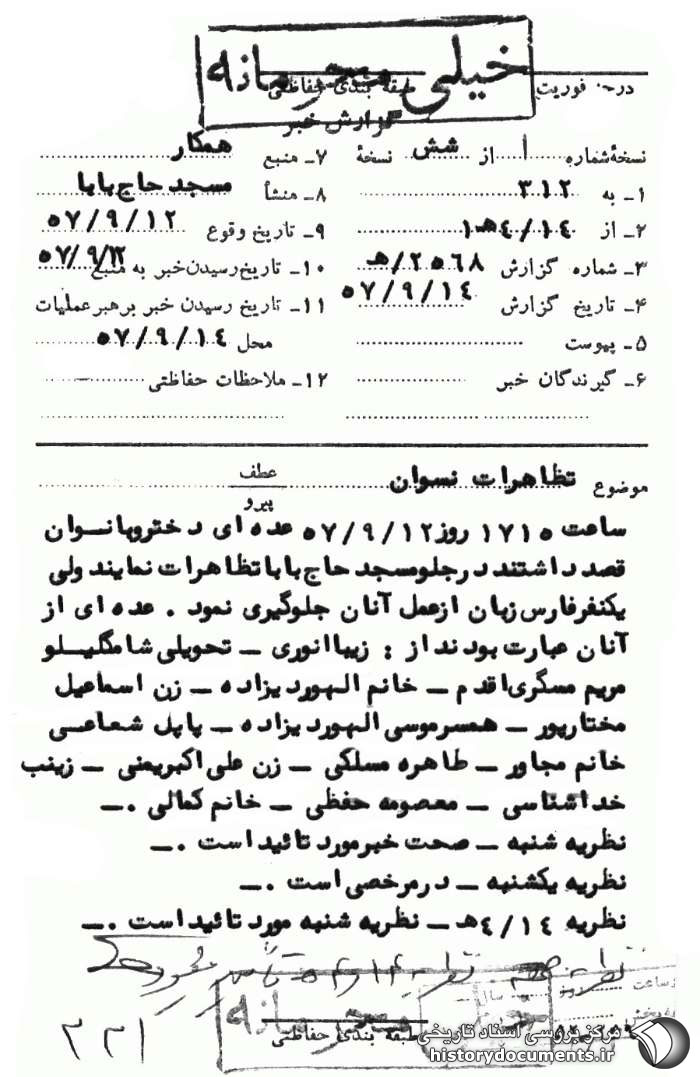 خیلی محرمانه
درجه فوریت طبقه بندی حفاظتی
گزارش خبر
نسخهٔ شماره ۱ از شش نسخهٔ
۱ـ به ۳۱۲
۲ـ از ۴/۱۴هـ۱
۳ـ شماره گزارش ۲۵۶۸/هـ
۴ـ تاریخ گزارش ۵۷/۹/۱۴
۵ـ پیوست
۶ـ گیرندگان خبر
۷ـ منبع همکار
۸ـ منشأ مسجد حاج بابا
۹ـ تاریخ وقوع ۵۷/۹/۱۲
۱۰ـ تاریخ رسیدن خبر به منبع ۵۷/۹/۱۲
۱۱ـ تاریخ رسیدن خبر برهبر عملیات
محل ۵۷/۹/۱۴
۱۲ـ ملاحظات حفاظتی
موضوع تظاهرات نسوان
عطف
پیرو
ساعت ۱۷۱۵ روز ۵۷/۹/۱۲ عده ای دختروبانسوان
قصد داشتند درجلومسجد حاج بابا تظاهرات نمایند ولی
یکنفرفارس زبان ازعمل آنان جلوگیری نمود . عده ای از
آنان عبارت بودند از : زیبا انوری ـ تحویلی شامگلیـلو
مریم مسگری اقدم ـ خانم الهوردیزاده ـ زن اسماعیل
مختارپور ـ همسرموسی الهوردیزاده ـ پاپل شعاعـی
خانم مجاور ـ طاهره مسلکی ـ زن علی اکبریمنی ـ زینب
خداشناسی ـ معصومه حفظی ـ خانم کمالی .ـ
نظریه شنبه ـ صحت خبرمورد تائید است .ـ
نظریه یکشنبه ـ درمرخصی است .ـ
نظریه ۴/۱۴هـ ـ نظریه شنبه مورد تائید است .ـ
خیلی محرمانه
طبقه بندی حفاظتی
ساعت
روز
سال
به بخش
۲۲۱
مرکز بررسی اسناد تاریخی
historydocuments.ir